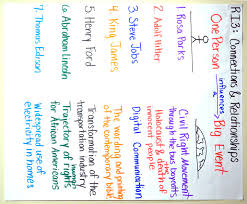 RI3: Connections & Relationships
One Person influences Big Event
1. Rosa Parks Civil Right Movement
through the bus boycotts
2. Adolf Hitler Holocaust & death of
innocent people
3. Steve Jobs Digital Communication
4. King James The wording and printing
of the contemporary bible
5. Henry Ford Transformation of the
transportation industry
6. Abraham Lincoln Trajectory of rights
for African Americans
7. Thomas Edison Widespread use of
electricity in homes